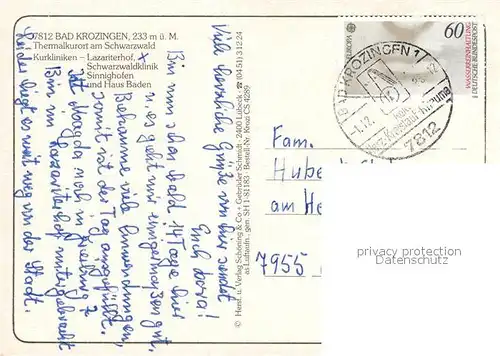 7812 BAD KROZINGEN, 233 m ü. M.
Thermalkurort am Schwarzwald
Kurkliniken – Lazariterhof,
Schwarzwaldklinik
Sinnighofen
und Haus Baden
Viele herzliche Grüße von hier sendet
Euch Dora!
Bin nun schon bald 14 Tage hier
u. es geht mir einigermaßen gut.
Bekomme viele Anwendungen,
somit ist der Tag ausgefüllt.
Ist Magda noch in Freiburg?
Bin im Lazariterhof untergebracht
leider liegt es weit weg von der Stadt.
© Herst. u. Verlag Schöning & Co + Gebrüder Schmidt · 2400 Lübeck · ☎ (04 51) 3 12 24
as Luftaufn., gen. SH 1-81183 · Bestell-Nr. Krozi CS 4289
EUROPA
60
WASSERREINHALTUNG
DEUTSCHE BUNDESPOST
BAD KROZINGEN 1
-1.12.
Herz-Kreislauf
7812
Fam.
Hube
am He
7955
privacy protection
Datenschutz